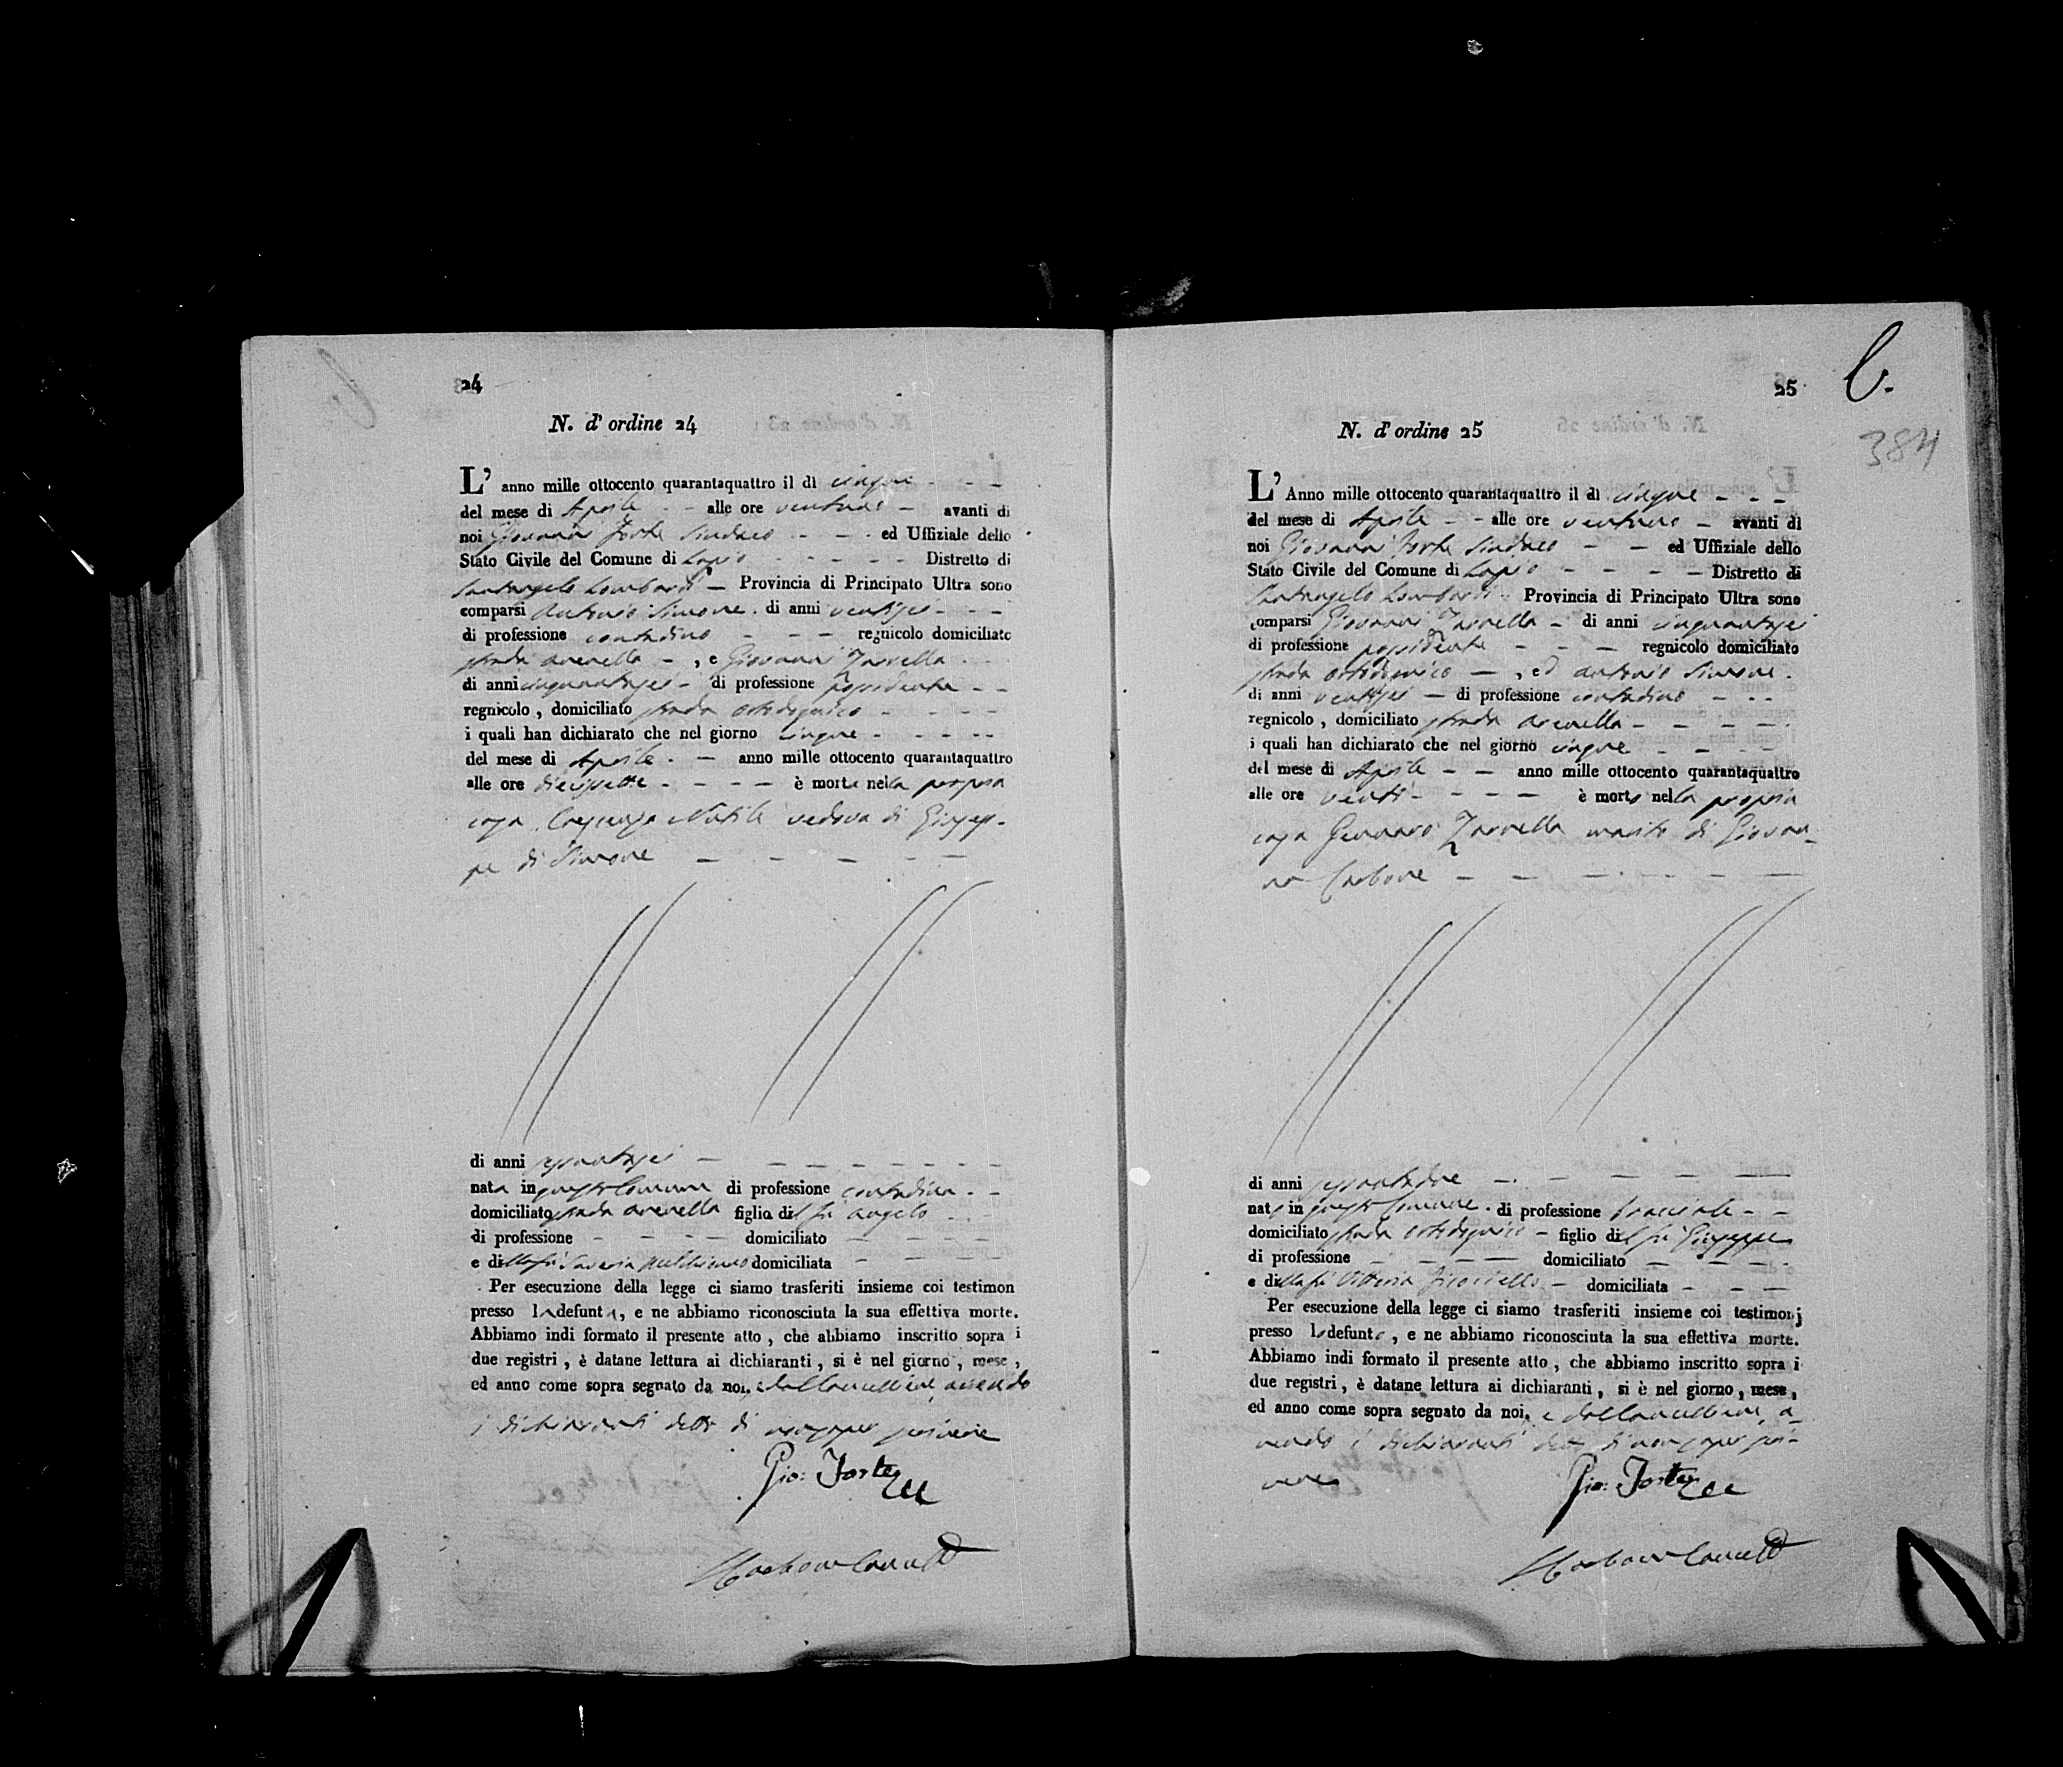 24
N. d' ordine 24
L' anno mille ottocento quarantaquattro il dì cinque
del mese di Aprile alle ore ventuno avanti di
noi Giovanni Forte Sindaco ed Uffiziale dello
Stato Civile del Comune di Lapio Distretto di
Santangelo Lombardi Provincia di Principato Ultra sono
comparsi Antonio Simone di anni ventisei
di professione contadino regnicolo domiciliato
strada Arenella , e Giovanni Zarrella
di anni cinquantasei di professione possidente
regnicolo , domiciliato strada
i quali han dichiarato che nel giorno cinque
del mese di Aprile anno mille ottocento quarantaquattro
alle ore diecisette è morta nella propria
casa Nutile vedova di Giusep-
pe di Simone
di anni sessantasei
nata in questo Comune di professione contadina
domiciliato strada Arenella figlia del fu Angelo
di professione domiciliato
e della fu Saveria domiciliata
Per esecuzione della legge ci siamo trasferiti insieme coi testimon
presso la defunta, e ne abbiamo riconosciuta la sua effettiva morte.
Abbiamo indi formato il presente atto , che abbiamo inscritto sopra i
due registri , è datane lettura ai dichiaranti , si è nel giorno , mese ,
ed anno come sopra segnato da noi, e dal Cancelliere avendo
i dichiaranti detto di non saper scrivere
Gio: Forte
25
b.
384
N. d' ordine 25
L' Anno mille ottocento quarantaquattro il dì cinque
del mese di Aprile alle ore ventuno avanti di
noi Giovanni Forte Sindaco ed Uffiziale dello
Stato Civile del Comune di Lapio Distretto di
Santangelo Lombardi Provincia di Principato Ultra sono
comparsi Giovanni Zarrella di anni cinquantasei
di professione possidente regnicolo domiciliato
strada , ed Antonio Simone
di anni ventisei di professione contadino
regnicolo , domiciliato strada Arenella
i quali han dichiarato che nel giorno cinque
del mese di Aprile anno mille ottocento quarantaquattro
alle ore venti è morto nella propria
casa Gennaro Zarrella marito di Giovan-
na Carbone
di anni sessantadue
nato in questo Comune di professione bracciale
domiciliato strada figlio del fu Giuseppe
di professione domiciliato
e della fu Vittoria domiciliata
Per esecuzione della legge ci siamo trasferiti insieme coi testimonj
presso lo defunto , e ne abbiamo riconosciuta la sua effettiva morte.
Abbiamo indi formato il presente atto , che abbiamo inscritto sopra i
due registri , è datane lettura ai dichiaranti , si è nel giorno , mese ,
ed anno come sopra segnato da noi, e dal Cancelliere a-
vendo i dichiaranti detto di non saper scri-
vere
Gio: Forte